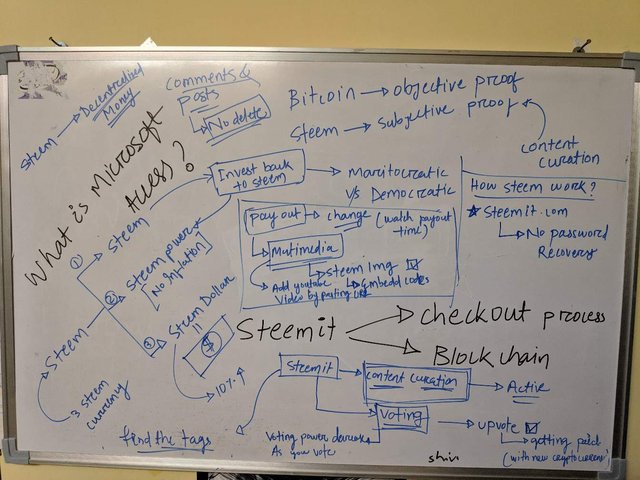 Steem → Decentralized
Money
Comments &
posts
↳ No delete
Bitcoin → objective proof
Steem → subjective proof
content
curation
What is Microsoft
Access?
Invest back
to steem
→ Maritocreatic
V/s Democratic
How steem work?
★ Steemit.com
↳ No password
Recovery
Pay out → change (watch payout
time)
↳ Multimedia
↳ Steem Img ☑
Add youtube
Video by pasting URL
↳ Embedd codes
① Steem
② Steem power
[No Inflation]
③ Steem Dollar
$
→ 10% ↑
Steem
3 steem
currency
Steemit → checkout process
→ Block chain
Steemit → content curation → Active
Voting → upvote ☑
↳ getting paid
(with new cryptocurrency)
Voting power decreases
As you vote
find the tags
shin